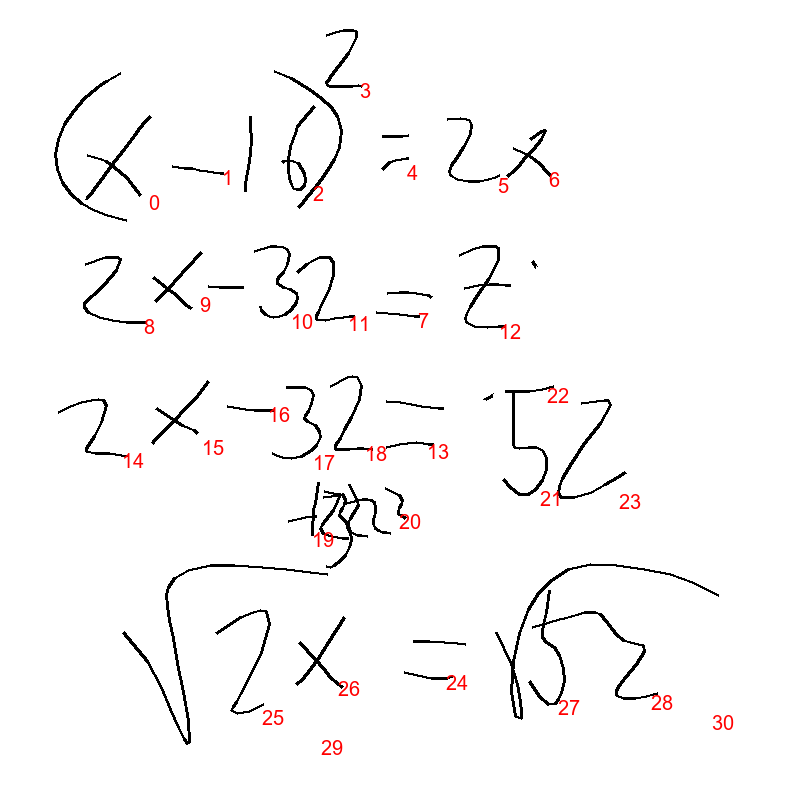 (x-16)² = 2x
0 1 2 3 4 5 6
2x-32 = z
8 9 10 11 7 12
2x-32 = 52
14 15 16 17 18 13 21 22 23
19 20
√2x = √52
25 26 24 27 28
29 30